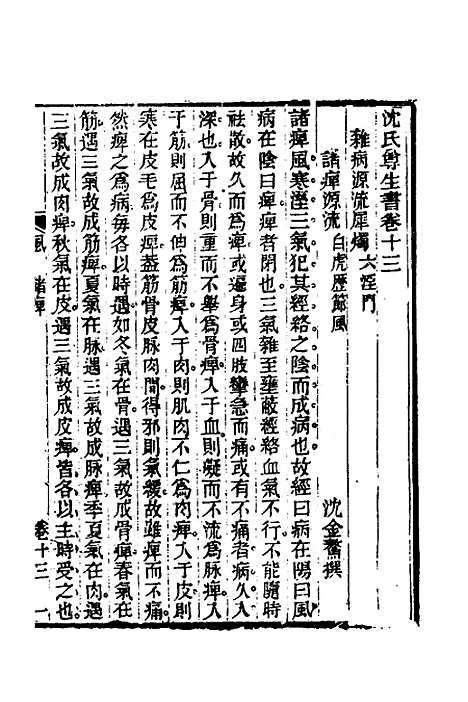 沈氏尊生書卷十三
雜病源流犀燭 六淫門　沈金鰲撰
諸痺源流 白虎歷節風
諸痺風寒溼三氣犯其經絡之陰而成病也故經曰病在陽曰風
病在陰曰痺痺者閉也三氣雜至壅蔽經絡血氣不行不能隨時
祛散故久而為痺或遍身或四肢攣急而痛或有不痛者病久入
深也入于骨則重而不舉為骨痺入于血則凝而不流為脉痺入
于筋則屈而不伸為筋痺入于肉則肌肉不仁為肉痺入于皮則
寒在皮毛為皮痺蓋筋骨皮脉肉間得邪則氣緩故雖痺而不痛
然痺之為病每各以時遇如冬氣在骨遇三氣故成骨痺春氣在
筋遇三氣故成筋痺夏氣在脉遇三氣故成脉痺季夏氣在肉遇
三氣故成肉痺秋氣在皮遇三氣故成皮痺皆各以主時受之也
風 諸痺 卷十三 一